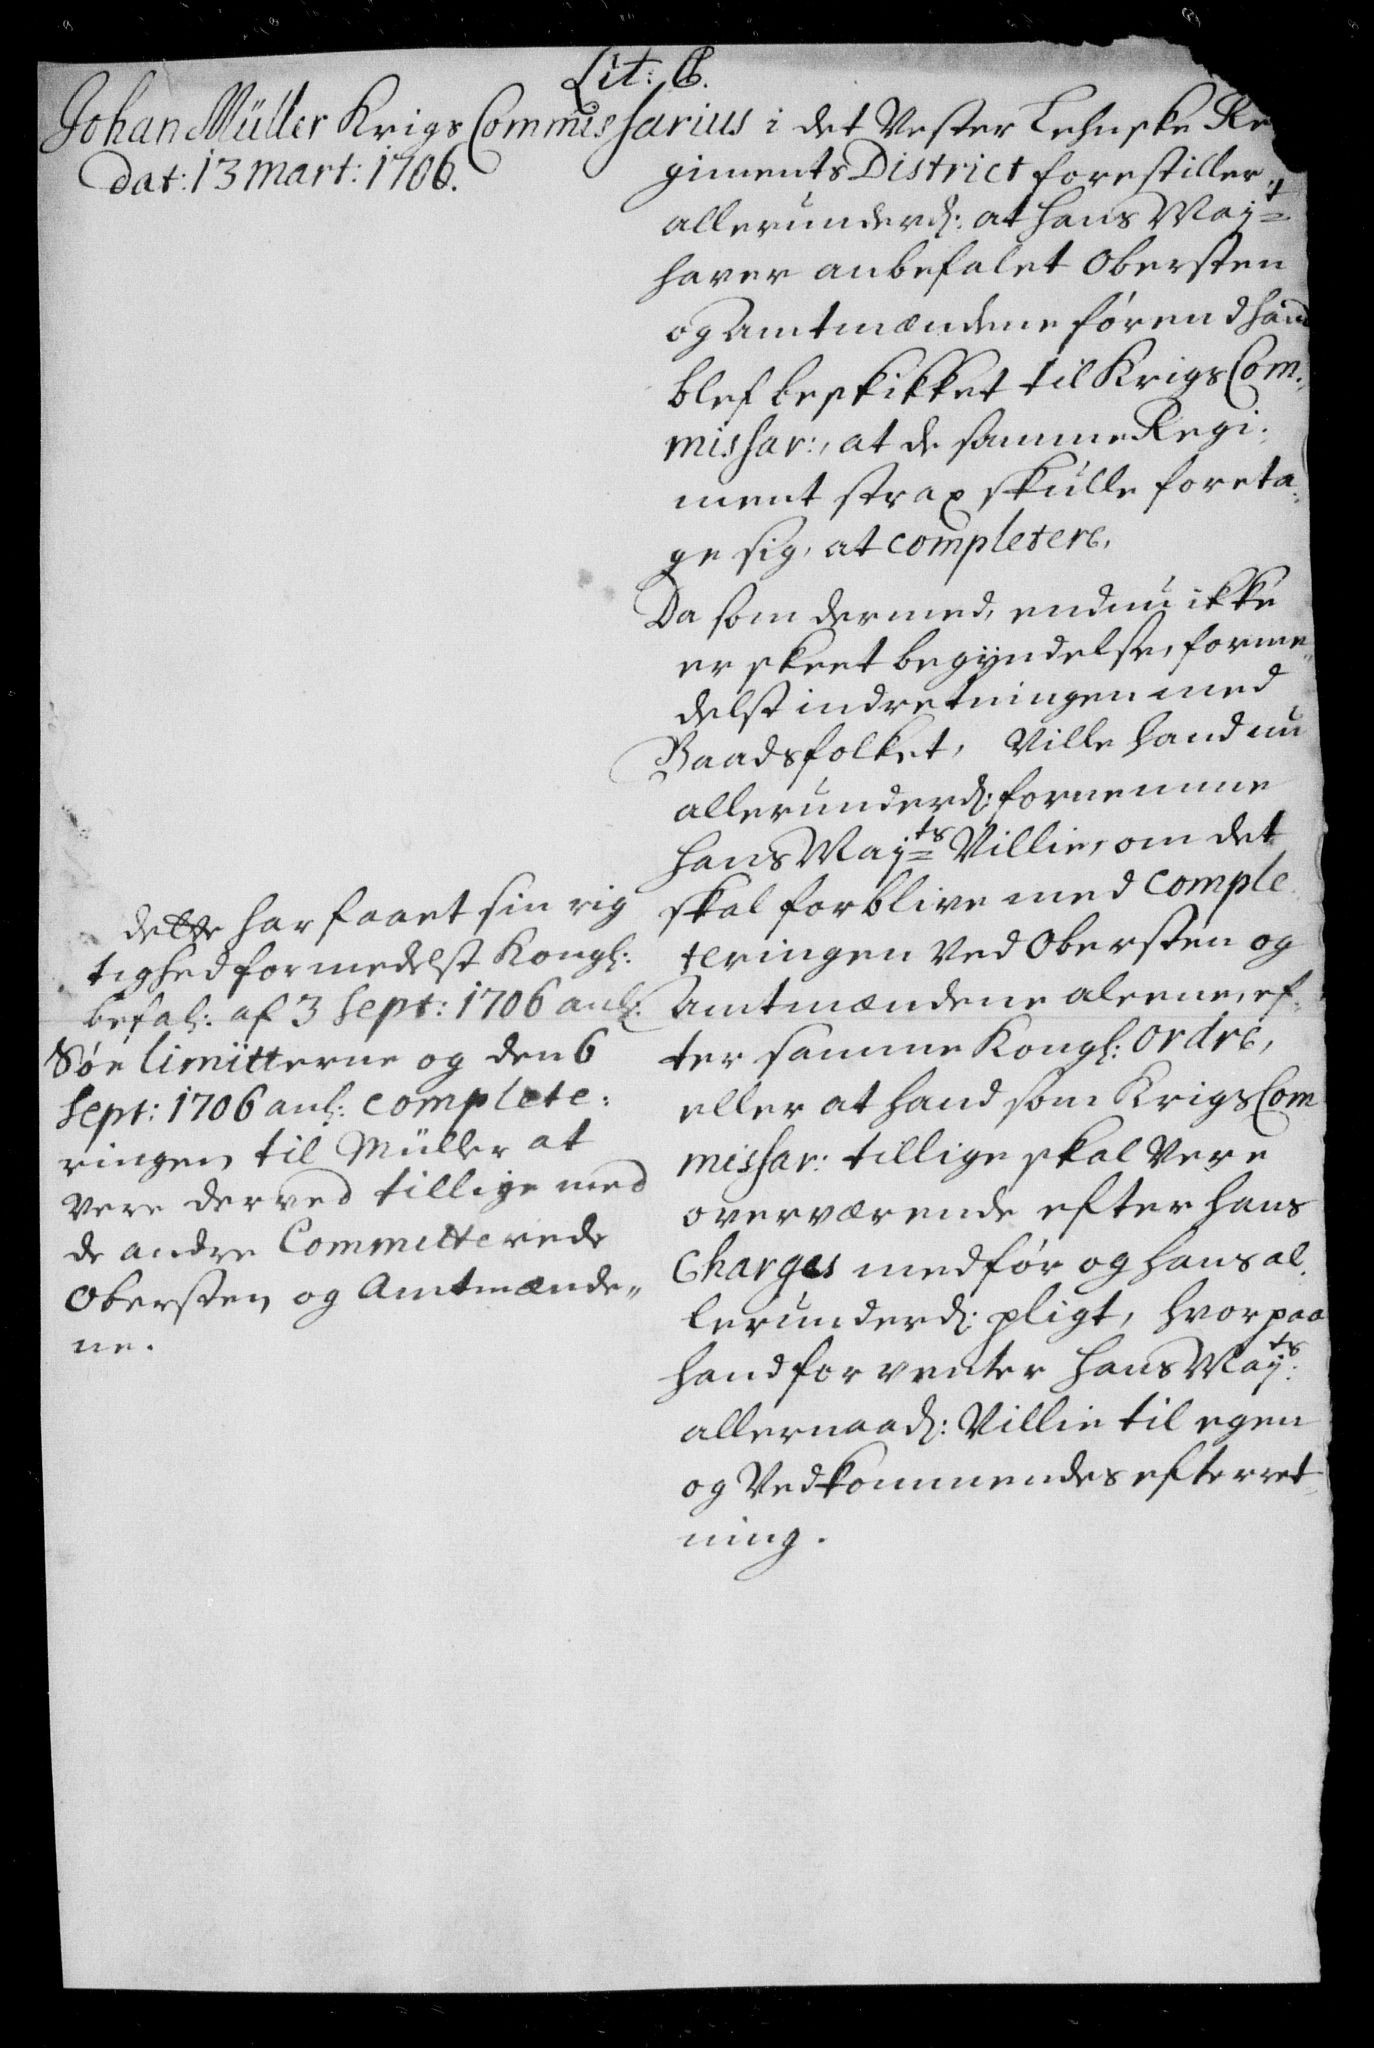 Lit: B.
Johan Müller Krigs Commissarius i det Vester Lehnske Re
dat: 13 mart: 1706.
giments District forestiller
allerunderd: at hans Maÿt
hafver anbefalet Obersten
og Amtmændene førend hand
blef beskikket til Krigs Com-
missar:, at de samme Regi-
ment strax skulle foreta-
ge sig, at completere.
Da som dermed, endnu ikke
er skeet begÿndelse, forme-
delst indretningen med
Baadsfolket, Ville hand nu
allerunderd: fornemme
hans Maÿts Villie, om det
skal forblive med comple-
teringen Ved Obersten og
Amtmændene aleene, ef-
ter samme Kongl: Ordre,
eller at hand som Krigs Com
missar: tillige skal Vere
overværende efter hans
Charges medfør og hans al-
lerunderd: pligt, hvorpaa
hand forventer hans Maÿts:
allernaad: Villie til egen
og Vedkommendes efterret-
ning.
dette har faaet sin rig
tighed formedelst Kongl:
befal: af 3 Sept: 1706 anl:
Søe limitterne og den 6
Sept: 1706 anl: complete-
ringen til Müller at
vere derved tillige med
de andre Committerede
Obersten og Amtmænde-
ne.